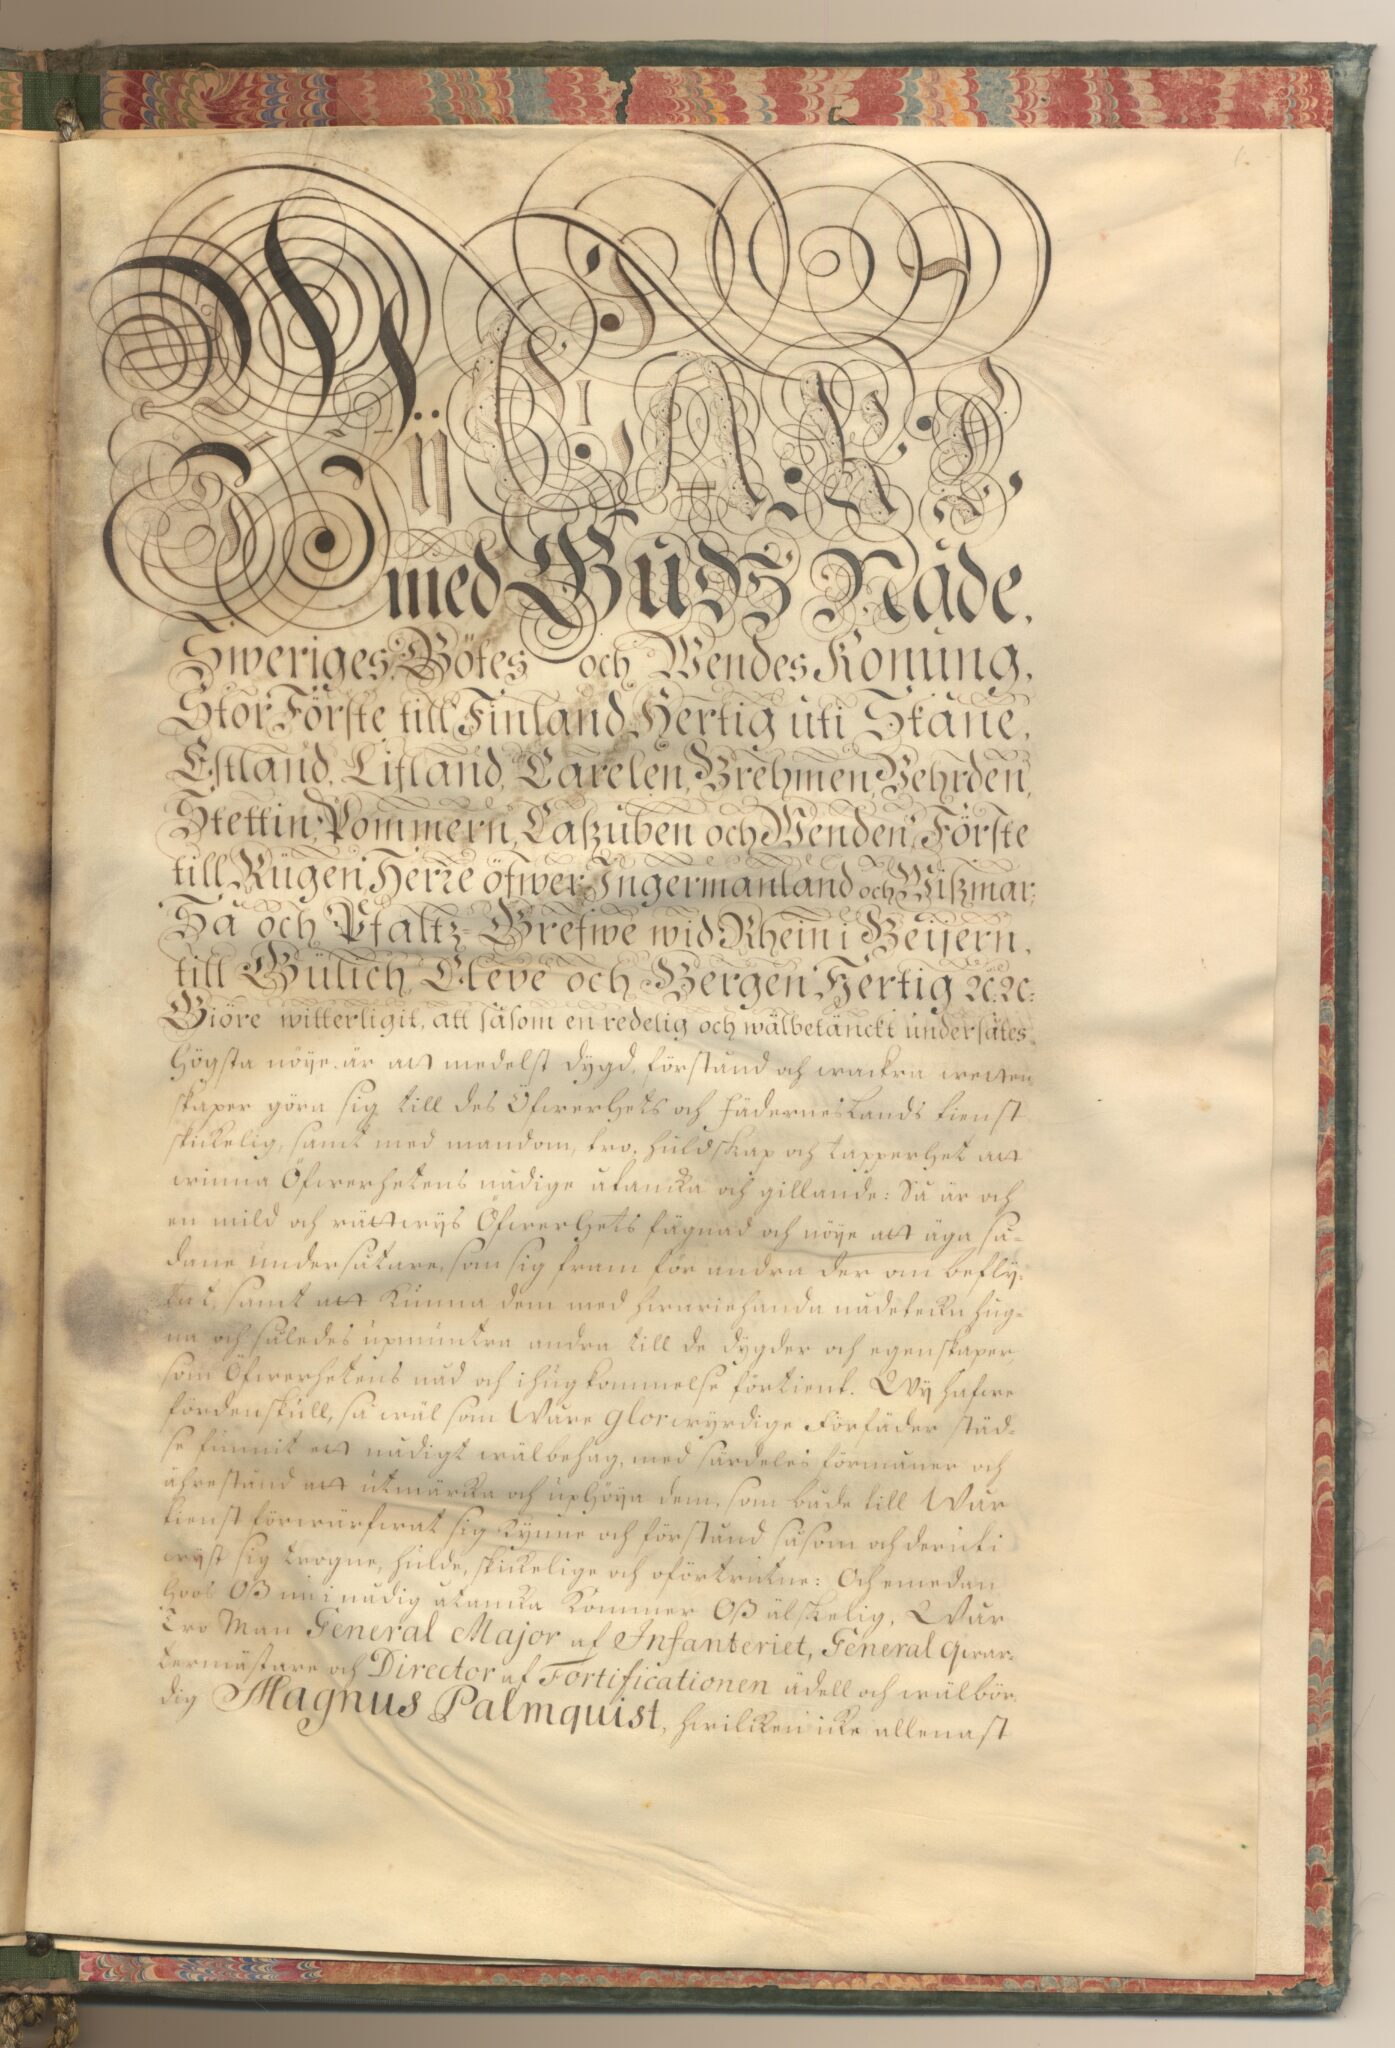 1.
Wij CARL
med Gudz Nåde,
Sweriges, Götes och Wendes Konung,
Stor Förste till Finland, Hertig uti Skåne,
Estland, Lifland, Carelen, Brehmen, Vehrden,
Stettin, Pommern, Caßuben och Wenden, Förste
till Rügen, Herre öfwer Ingermanland och Wißmar;
Så och Pfaltz-Grefwe wid Rhein i Beijern,
till Gülich, Cleve och Bergen Hertig 2c. 2c:
Giöre witterligit, att såsom en redelig och wälbetänckt undersåtes
högsta nöye är att medelst dygd, förstånd och wackra wetten
skaper göra sig till des Öfwerhets och Fäderneslands tienst
skickelig, samt med mandom, tro, huldskap och tapperhet att
winna Öfwerhetens nådige åtancka och gillande: Så är och
en mild och rättwys Öfwerhets fägnad och nöye att äga så-
dane undersåtare, som sig fram för andra der om befly-
tat, samt att kunna dem med hwariehanda nådetekn hug-
na och således upmuntra andra till de dygder och egenskaper,
som Öfwerhetens nåd och ihugkommelse förtient. Wy hafwe
fördenskull, så wäl som Wåre glorwyrdige Förfäder städ-
se funnit ett nådigt wälbehag, med särdeles förmåner och
ährestånd att utmärcka och uphöya dem, som både till Wår
tienst förwärfwat sig kynne och förstånd såsom och deruti
wyst sig trogne, hulde, skickelige och oförtrutne: Och emedan
hoos Oß nu i nådig åtancka kommer Oß älskelig, Wår
Tro Man General Major af Infanteriet, General Qwar-
termästare och Director af Fortificationen ädell och wälbör-
dig Magnus Palmquist, hwilcken icke allenast